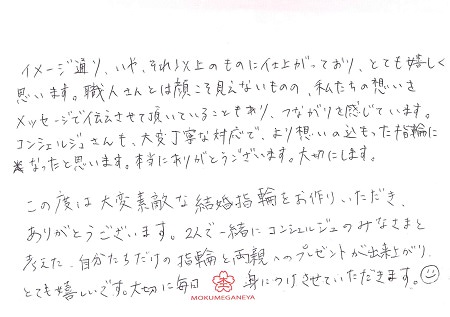 イメージ通り、いや、それ以上のものに仕上がっており、とても嬉しく
思います。職人さんとは顔こそ見えないものの、私たちの想いを
メッセージで伝えさせて頂いていることもあり、つながりを感じています。
コンシェルジュさんも、大変丁寧な対応で、より想いの込もった指輪に
なったと思います。本当にありがとうございます。大切にします。
この度は大変素敵な結婚指輪をお作りいただき、
ありがとうございます。2人で一緒にコンシェルジュのみなさまと
考えた、自分たちだけの指輪と両親へのプレゼントが出来上がり、
とても嬉しいです。大切に毎日 身につけさせていただきます。
MOKUMEGANEYA